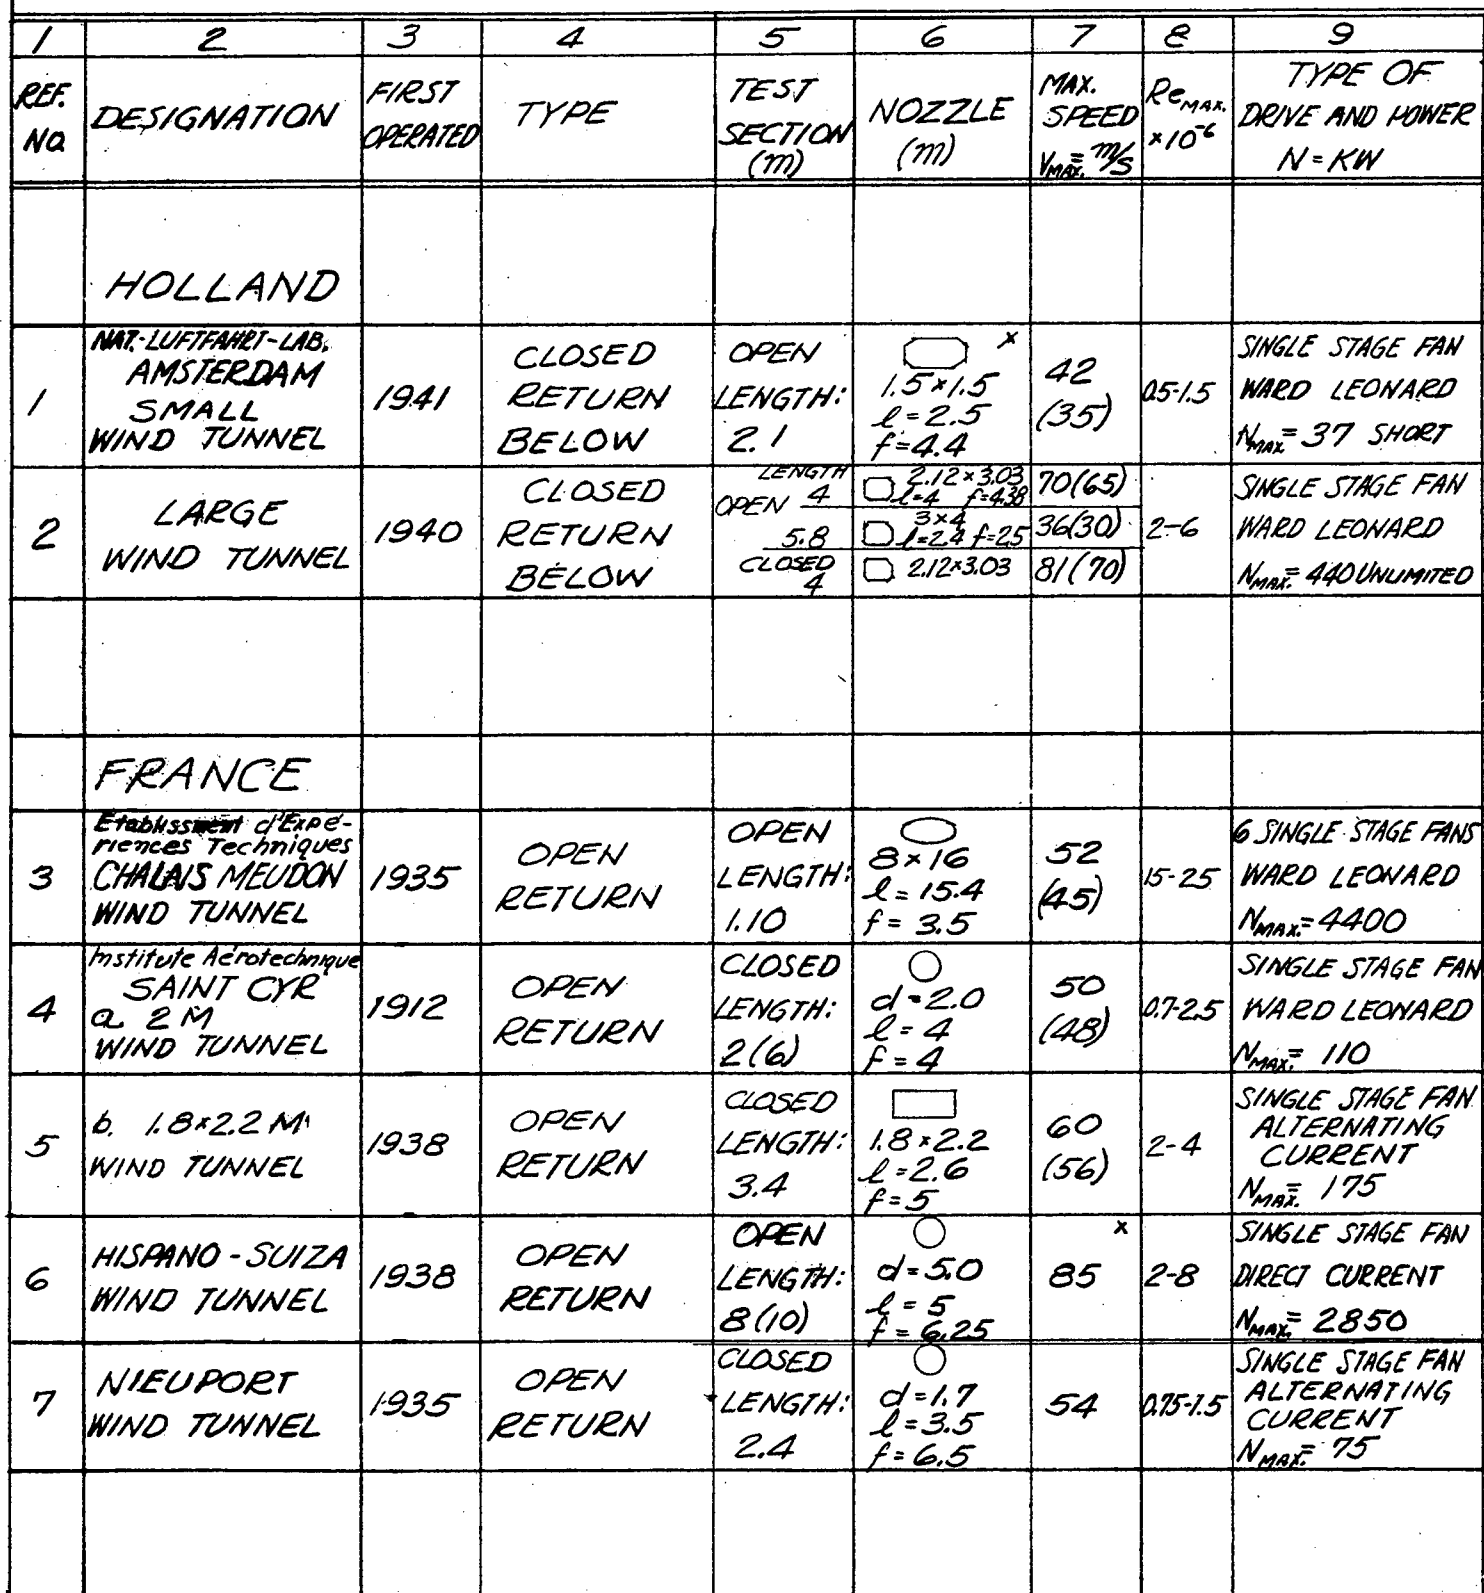 1 2 3 4 5 6 7 8 9
REF. NO. DESIGNATION FIRST OPERATED TYPE TEST SECTION (m) NOZZLE (m) MAX. SPEED VMAX. = m/s ReMAX. ×10-6 TYPE OF DRIVE AND POWER N = KW
HOLLAND
1
NAT.-LUFTFAHRT-LAB.
AMSTERDAM
SMALL
WIND TUNNEL
1941
CLOSED
RETURN
BELOW
OPEN
LENGTH:
2.1
x
1.5×1.5
l = 2.5
f = 4.4
42
(35)
0.5-1.5
SINGLE STAGE FAN
WARD LEONARD
NMAX. = 37 SHORT
2
LARGE
WIND TUNNEL
1940
CLOSED
RETURN
BELOW
LENGTH
OPEN 4
5.8
CLOSED
4
2.12×3.03
l=4 f=4.38
3×4
l=2.4 f=25
2.12×3.03
70(65)
36(30)
81(70)
2-6
SINGLE STAGE FAN
WARD LEONARD
NMAX. = 440 UNLIMITED
FRANCE
3
Etablissment d'Expé-
riences Techniques
CHALAIS MEUDON
WIND TUNNEL
1935
OPEN
RETURN
OPEN
LENGTH:
1.10
8×16
l = 15.4
f = 3.5
52
(45)
15-25
6 SINGLE STAGE FANS
WARD LEONARD
NMAX. = 4400
4
Institute Aérotechnique
SAINT CYR
a. 2 M
WIND TUNNEL
1912
OPEN
RETURN
CLOSED
LENGTH:
2(6)
d = 2.0
l = 4
f = 4
50
(48)
0.7-2.5
SINGLE STAGE FAN
WARD LEONARD
NMAX. = 110
5
b. 1.8×2.2 M
WIND TUNNEL
1938
OPEN
RETURN
CLOSED
LENGTH:
3.4
1.8×2.2
l = 2.6
f = 5
60
(56)
2-4
SINGLE STAGE FAN
ALTERNATING
CURRENT
NMAX. = 175
6
HISPANO-SUIZA
WIND TUNNEL
1938
OPEN
RETURN
OPEN
LENGTH:
8(10)
d = 5.0
l = 5
f = 6.25
x
85
2-8
SINGLE STAGE FAN
DIRECT CURRENT
NMAX. = 2850
7
NIEUPORT
WIND TUNNEL
1935
OPEN
RETURN
CLOSED
LENGTH:
2.4
d = 1.7
l = 3.5
f = 6.5
54
0.75-1.5
SINGLE STAGE FAN
ALTERNATING
CURRENT
NMAX. = 75